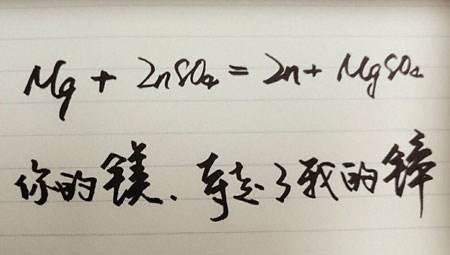 Mg + ZnSO₄ = Zn + MgSO₄
你的镁.夺走了我的锌